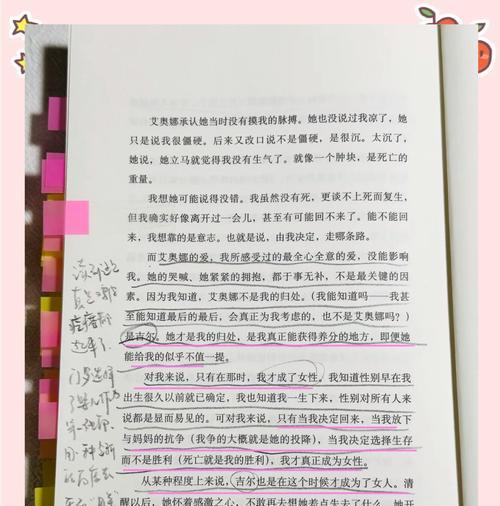 艾奥娜承认她当时没有摸我的脉搏。她也没说过我凉了，她
只是说我很僵硬。后来又改口说不是僵硬，是很沉。太沉了，
她说，她立马就觉得我没有生气了。就像一个肿块，是死亡的
重量。
我想她可能说得没错。我虽然没有死，更谈不上死而复生，
但我确实好像离开过一会儿，甚至有可能回不来了。能不能回
来，我想靠的是意志。也就是说，由我决定，走哪条路。
而艾奥娜的爱，我所感受过的最全心全意的爱，没能影响
我。她的哭喊、她紧紧的拥抱，都于事无补，不是最关键的因
素。因为我知道，艾奥娜不是我的归处。（我能知道吗——我甚
至能知道最后的最后，会真正为我考虑的，也不是艾奥娜吗？）
是吉尔。她才是我的归处，是我真正能获得养分的地方，即便她
能给我的似乎不值一提。
对我来说，只有在那时，我才成了女性。我知道性别早在我
出生很久以前就已确定，我也知道我一生下来，性别对所有人来
说都是显而易见的。可对我来说，只有当我决定回来，当我放下
与妈妈的抗争（我争的大概就是她的投降），当我决定选择生存
而不是胜利（死亡就是我的胜利），我才真正成为女性。
从某种程度上来说，吉尔也是在这个时候才成为了女人。清
醒以后，她怀着感激之心，不敢再去想她差点失去了什么，她开